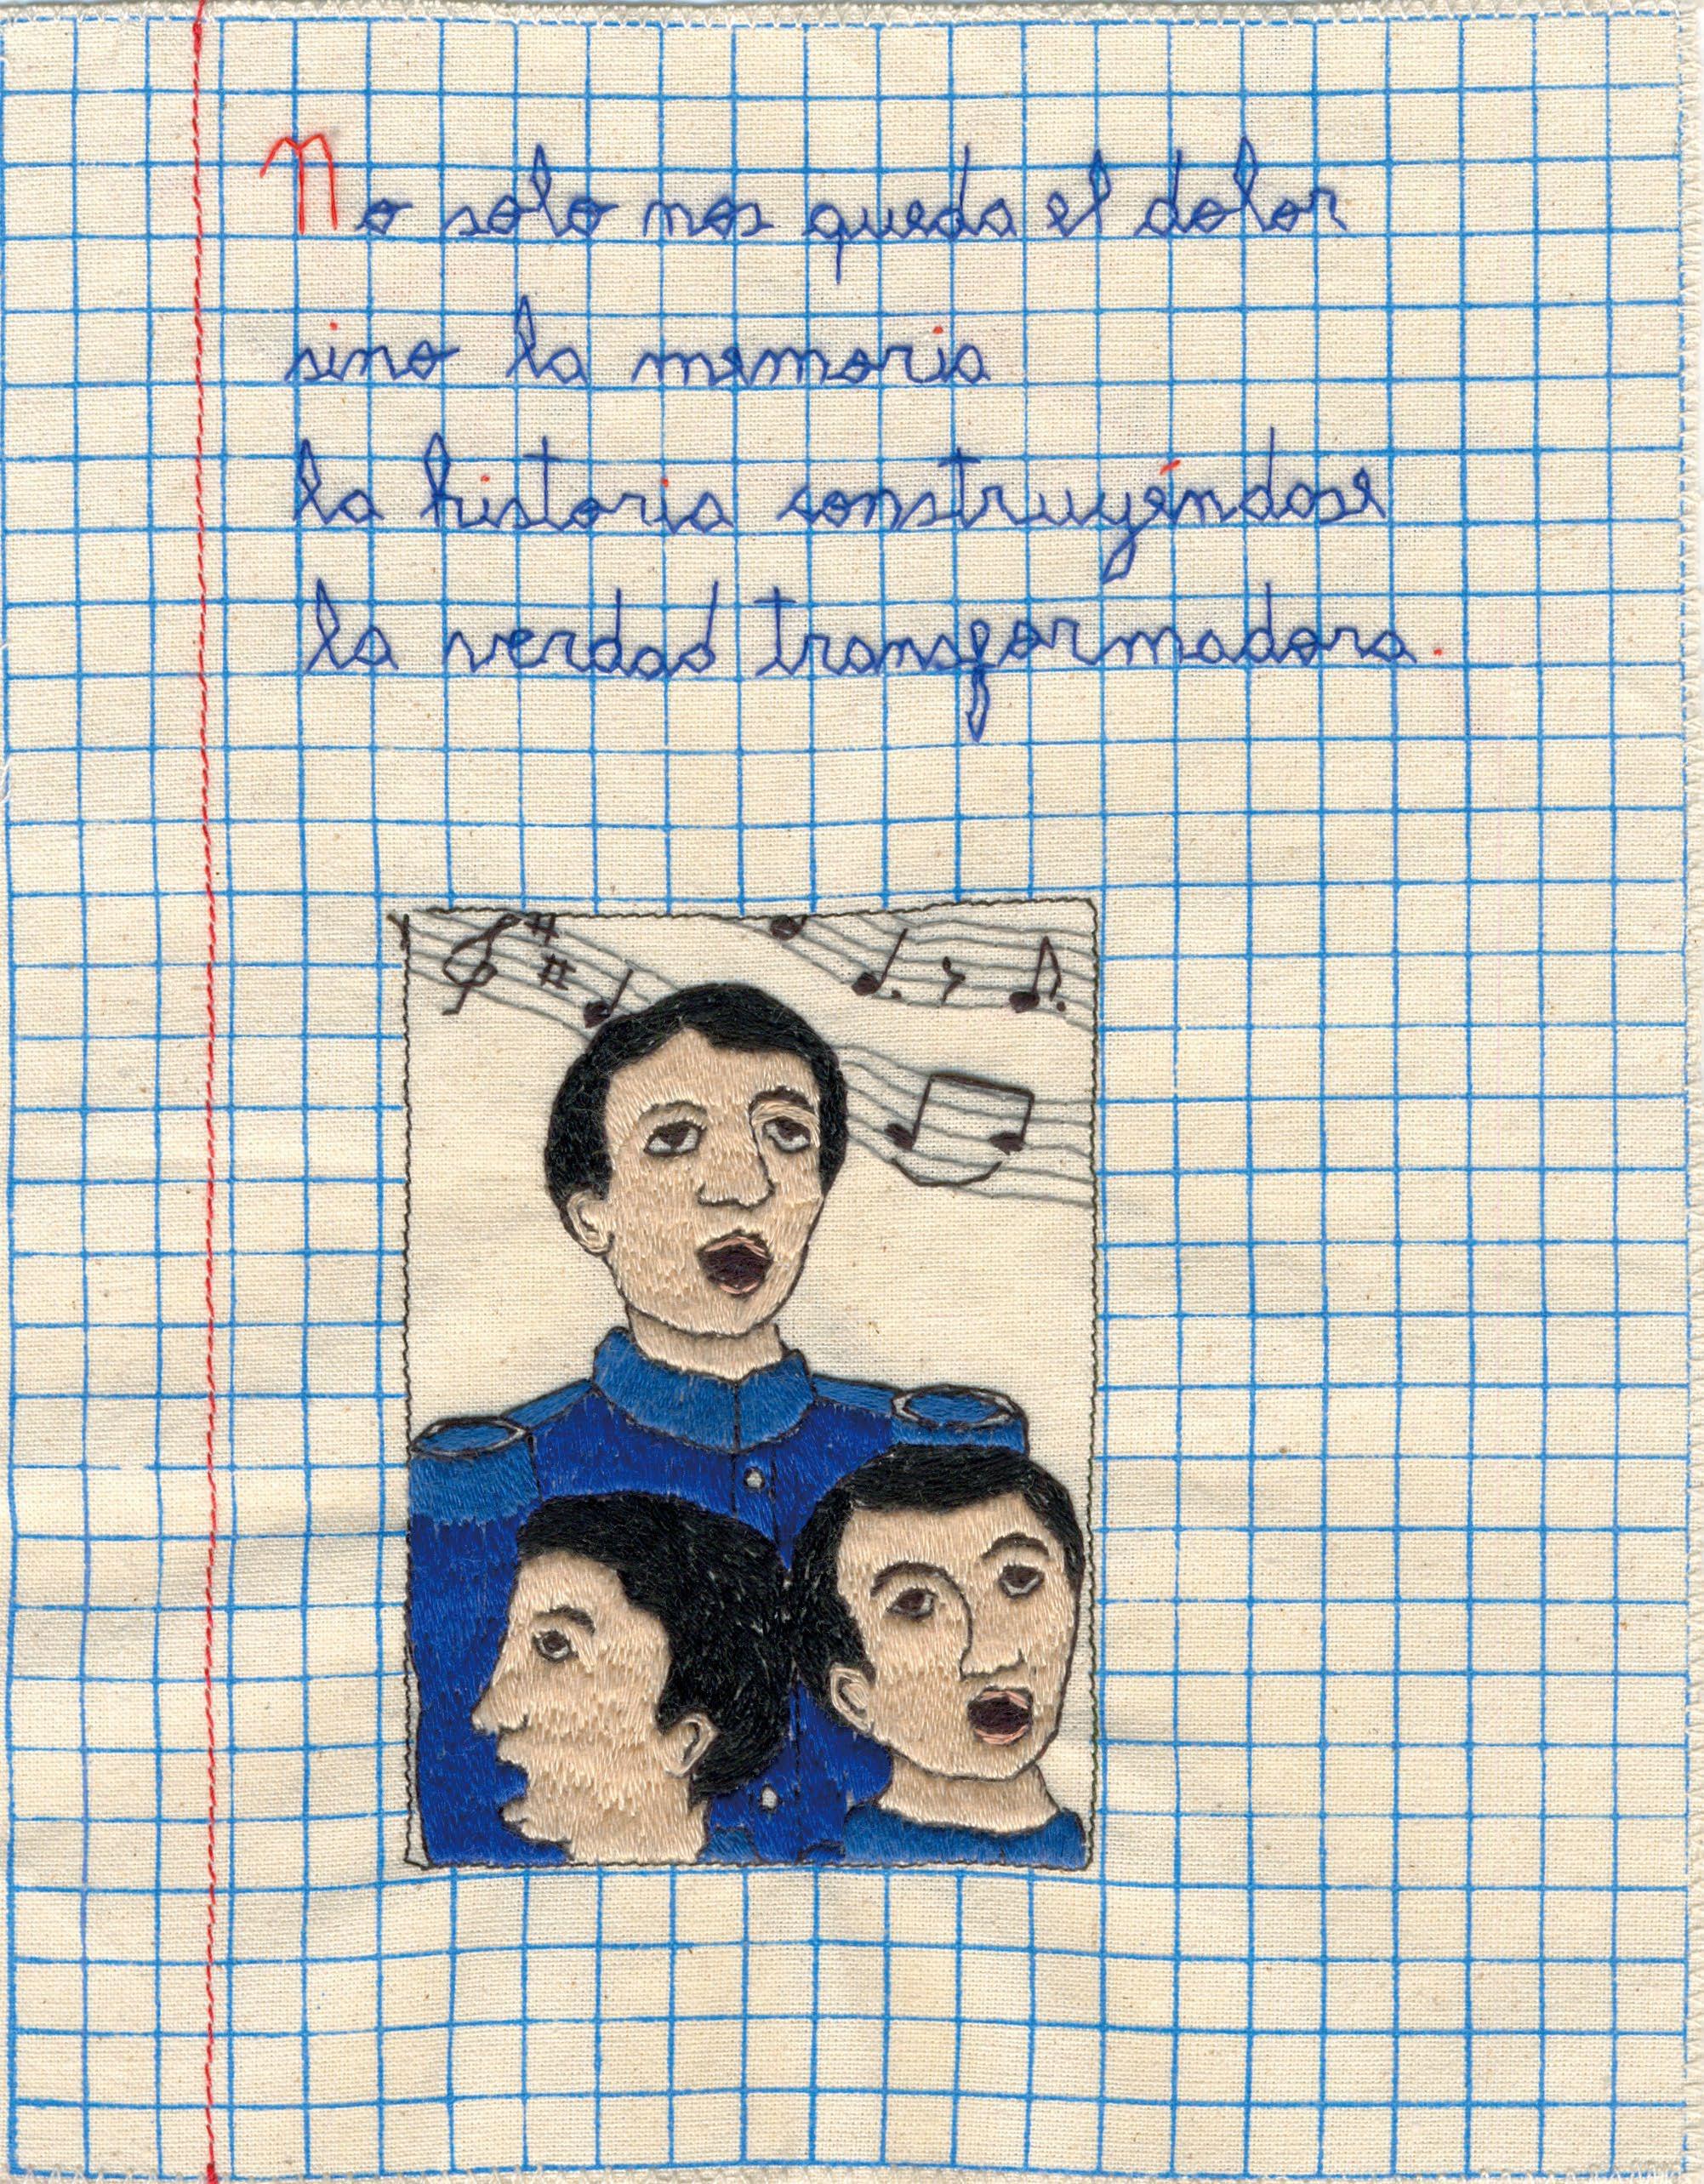 No solo nos queda el dolor
sino la memoria
la historia construyéndose
la verdad transformadora.